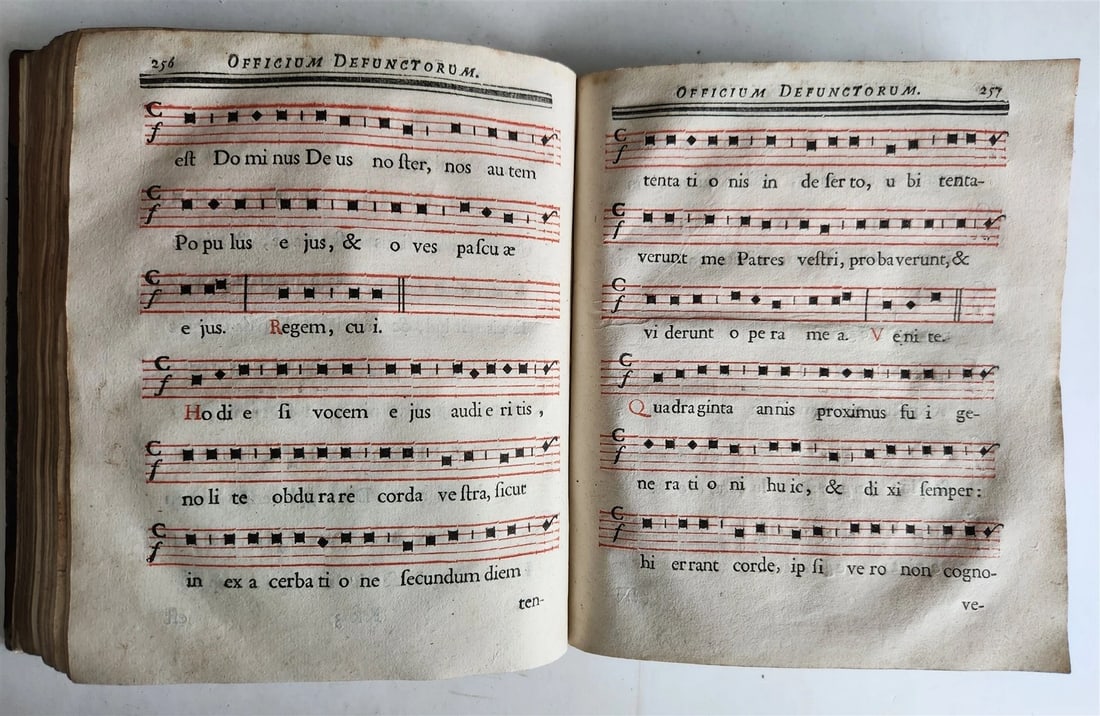 256 OFFICIUM DEFUNCTORUM.
eſt Do mi nus De us no ſter, nos au tem
Po pu lus e jus, & o ves paſcu æ
e jus. Regem, cu i.
Ho di e ſi vocem e jus audi e ri tis ,
no li te obdu ra re corda ve ſtra, ſicut
in ex a cerba ti o ne ſecundum diem
ten-
OFFICIUM DEFUNCTORUM. 257
tenta ti o nis in de ſer to, u bi tenta-
verunt me Patres veſtri, pro ba verunt, &
vi derunt o pe ra me a. V e ni te.
Quadraginta annis proximus fu i ge-
ne ra ti o ni hu ic, & di xi ſemper:
hi errant corde, ip ſi ve ro non cogno-
ve-